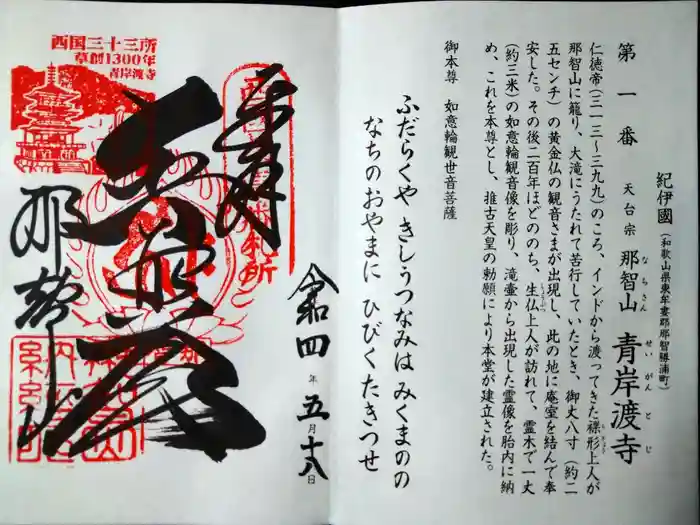 紀伊國(和歌山県東牟婁郡那智勝浦町)
第一番 天台宗 那智山 青岸渡寺
なちさん せいがんとじ
仁徳帝(三一三〜三九九)のころ、インドから渡ってきた裸形上人が
那智山に籠り、大滝にうたれて苦行していたとき、御丈八寸(約二
五センチ)の黄金仏の観音さまが出現し、此の地に庵室を結んで奉
安した。その後二百年ほどののち、生仏上人が訪れて、霊木で一丈
(約三米)の如意輪観音像を彫り、滝壷から出現した霊像を胎内に納
め、これを本尊とし、推古天皇の勅願により本堂が建立された。
御本尊 如意輪観世音菩薩
ふだらくや きしうつなみは みくまのの
なちのおやまに ひびくたきつせ
西国三十三所
草創1300年
青岸渡寺
奉拝
札所
令和四年五月十八日
那智山